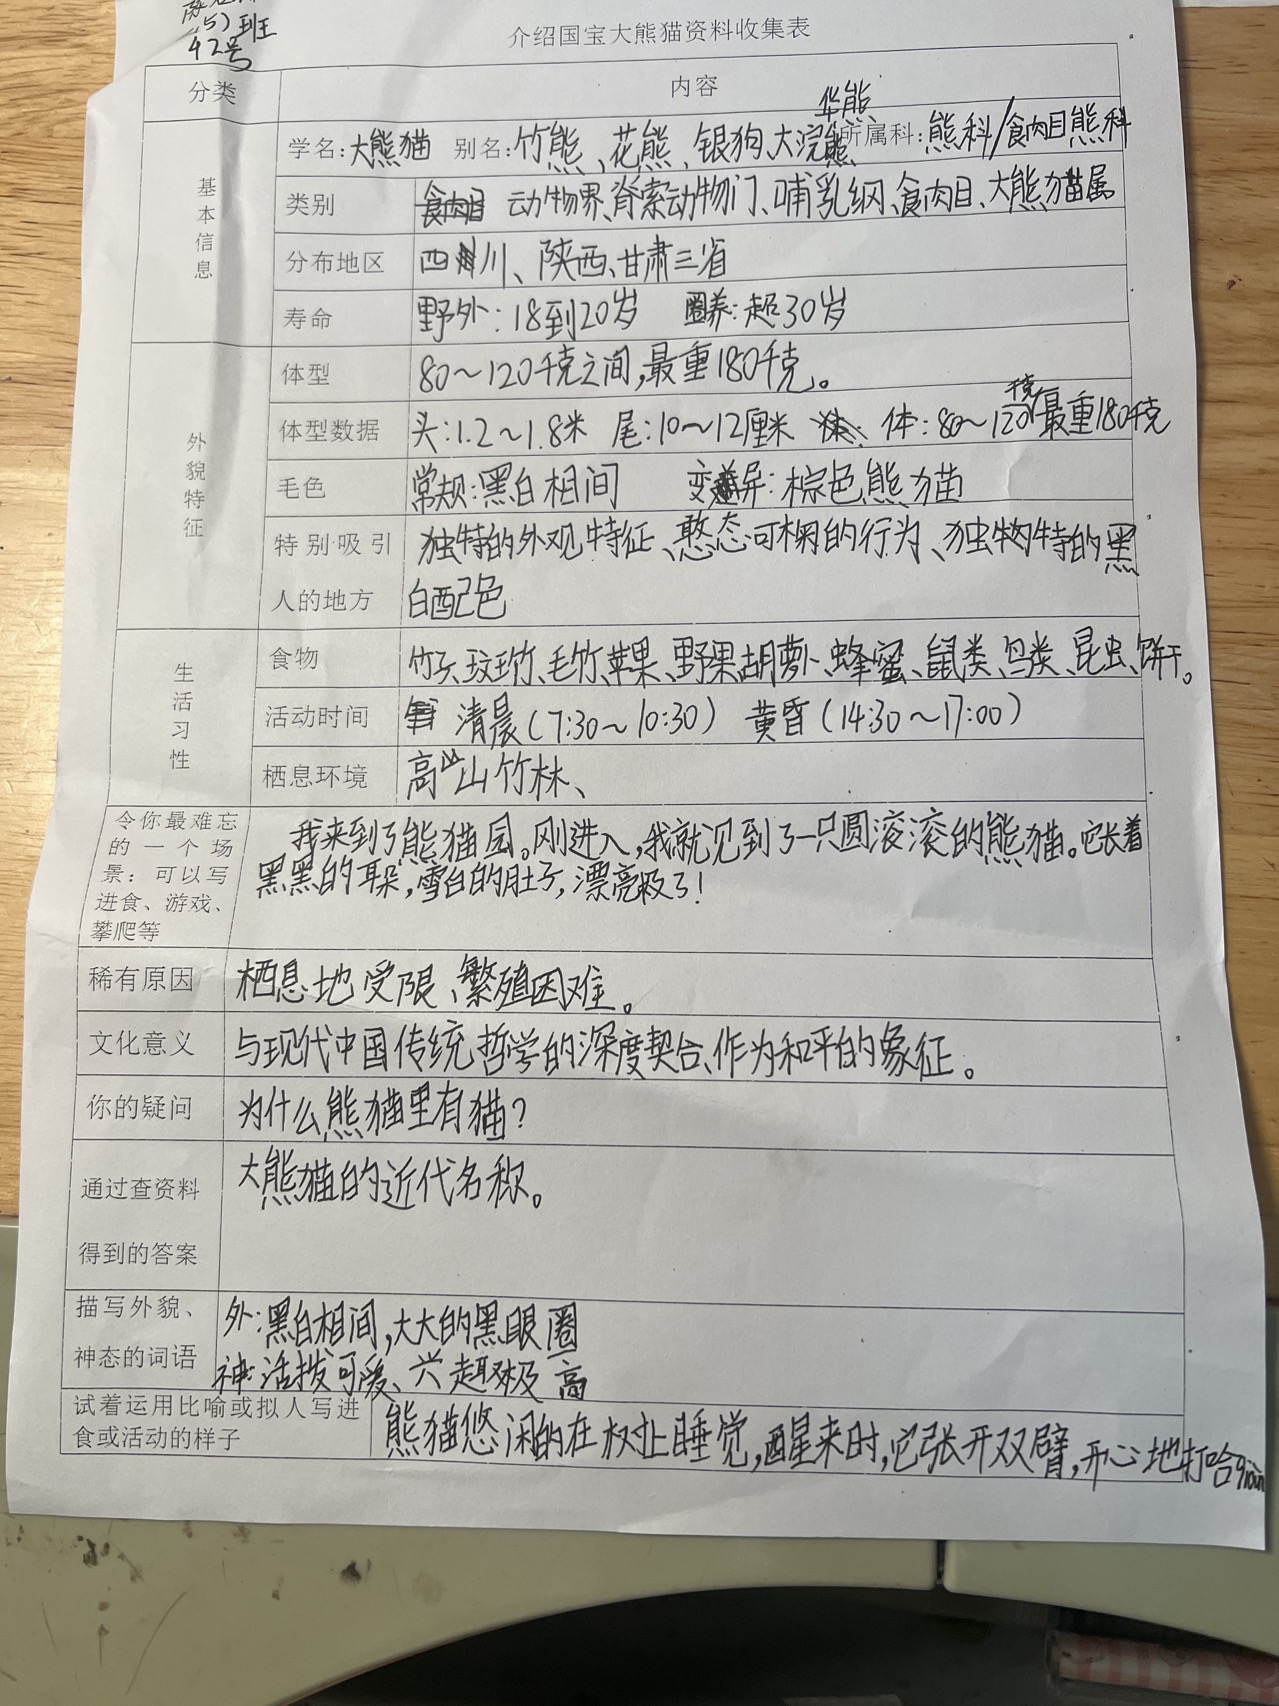 5)班
42号
介绍国宝大熊猫资料收集表
分类 内容
基本信息
华熊
学名:大熊猫 别名:竹熊、花熊、银狗、大浣熊 所属科:熊科/食肉目熊科
类别 食肉目 动物界、脊索动物门、哺乳纲、食肉目、大熊猫属
分布地区 四川、陕西、甘肃三省
寿命 野外:18到20岁 圈养:超30岁
外貌特征
体型 80～120千克之间,最重180千克。
千克
体型数据 头:1.2～1.8米 尾:10～12厘米 体:80～120 最重180千克
毛色 常规:黑白相间 变异:棕色熊猫
特别吸引 独特的外观特征、憨态可掬的行为、独特的黑
人的地方 白配色
生活习性
食物 竹子、玟竹、毛竹、苹果、野果、胡萝卜、蜂蜜、鼠类、鸟类、昆虫、饼干。
活动时间 清晨(7:30～10:30) 黄昏(14:30～17:00)
栖息环境 高山竹林、
令你最难忘
的一个场
景:可以写
进食、游戏、
攀爬等
我来到了熊猫园。刚进入,我就见到了一只圆滚滚的熊猫。它长着
黑黑的耳朵,雪白的肚子,漂亮极了!
稀有原因 栖息地受限、繁殖困难。
文化意义 与现代中国传统哲学的深度契合、作为和平的象征。
你的疑问 为什么熊猫里有猫?
通过查资料 大熊猫的近代名称。
得到的答案
描写外貌、 外:黑白相间,大大的黑眼圈
神态的词语 神:活拨可爱、兴趣极高
试着运用比喻或拟人写进
食或活动的样子
熊猫悠闲的在杈上睡觉,醒来时,它张开双臂,开心地打哈qian